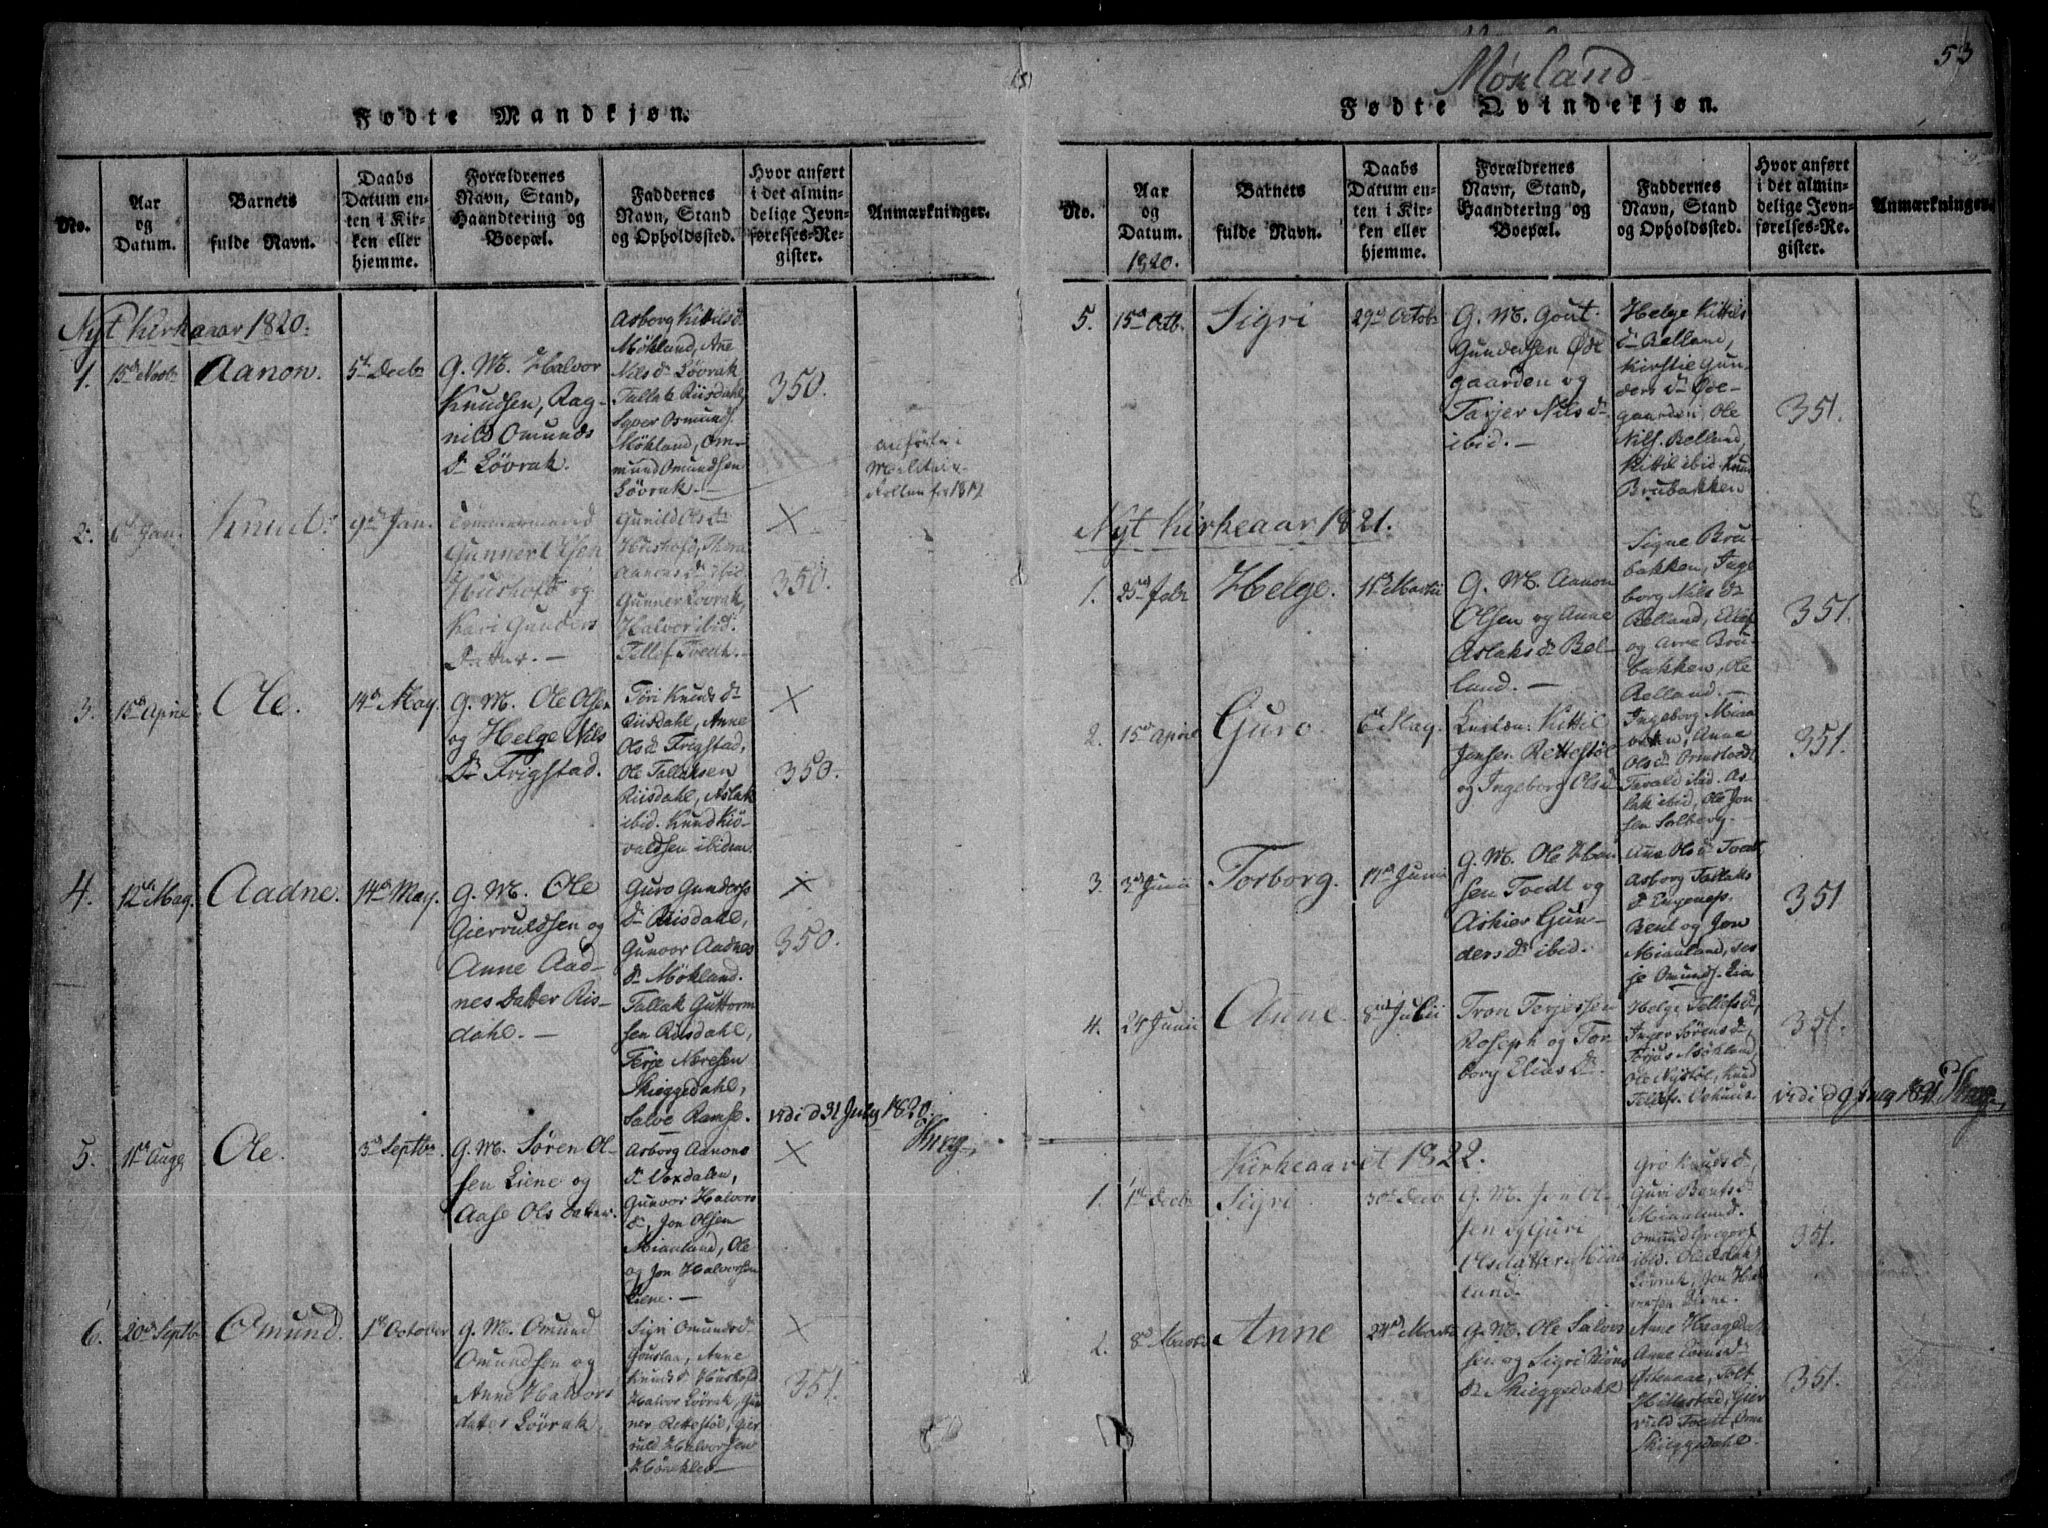 Mökland
53
Fødte Mandkjøn.
No.
Aar
og
Datum.
Barnets
fulde Navn.
Daabs
Datum en-
ten i Kir-
ken eller
hjemme.
Forældrenes
Navn, Stand,
Haandtering og
Boepæl.
Faddernes
Navn, Stand
og Opholdssted.
Hvor anført
i det almin-
delige Jevn-
førelses-Re-
gister.
Anmærkninger.
Nyt Kirkeaar 1820:
1.
15de Novbr
Aanon.
5te Decbr
G. M. Halvor
Knudsen, Rag-
nild Omunds
Dr Lövrak.
Asborg Kittilsdr
Mökland, Ane
Nilsdr Lövrak
Tallak Riisdahl,
Syver Osmunds.
Mökland, Om-
mund Omundsen
Lövrak.—
350.
2.
6te Jan.
Knut.
9de Jan.
Gunner
Hushofd og
Kari Gunders
Datter.—
Gunild Olsdr
Gunner Lovrak,
Halvor ibid.
Tellef Toedt.—
×
350.
anförte i
Militair
Rollen for 1819
3.
15de Aprie
Ole.
14de May.
G. M. Ole Olsen
og Helge Nils
Dr Frigstad.
Töri Knudsdr
Riisdahl, Anne
Olsdr Frigstad,
Ole Tallaksen
Riisdahl, Aslak
ibid. Knud Kiö-
valdsen ibidem
×
350.
4.
12te May.
Aadne.
14de May.
G. M. Ole
Gierruldsen og
Anne Aad-
nes Datter Ris-
dahl.—
Guro Gunders
Dr Riisdahl,
Gunvor Aadnes
dr Mökland.
Tallak Guttorm
sen Riisdahl,
Terje Noresen
Skieggedahl,
Salve Ramse.
×
350.
vidi d 31 July 1820.
5.
11te Augs
Ole.
3de Septbr
G. M. Sören Ol-
sen Liene og
Aase Ols Datter.
Asborg Aanons
dr Voxdalen,
Gunvor Halvors
dr, Jon Olsen
Mianland, Ole
og Jon Halvorsen
Liene.—
×
6.
20de Septbr
Omund.
1te October
G. M. Omund
Omundsen og
Anne Halvors
dater Lövrak.
Sigri Omundsdr
Gouslaa, Anne
Knudsdr Hushofd
Halvor Lövrak, Gun
ner Rettestöl, Gier
ruld Halvorsen
Höneklev—
×
351.
Fødte Qvindekjøn.
No.
Aar
og
Datum.
1820.
Barnets
fulde Navn.
Daabs
Datum en-
ten i Kir-
ken eller
hjemme.
Forældrenes
Navn, Stand,
Haandtering og
Boepæl.
Faddernes
Navn, Stand
og Opholdssted.
Hvor anført
i det almin-
delige Jevn-
førelses-Re-
gister.
Anmærkninger.
5.
15de Octb.
Sigri
29de Octobr
G. M. Gout
Gundersen Öde
gaarden og
Tarjer Nilsdr
ibid.—
Helge Kittils
dr Belland,
Kirstie Gun-
ders dr Öde-
gaarden, Ole
Nils. Belland,
Kittil ibid. Knud
Brubakken
351.
Nyt Kirkeaar 1821.
1.
Helge.
11te Martii
G. M. Aanon
Olsen og Anne
Aslaksdr Bel-
land.—
Signe Bru-
bakken, Inge
borg Nilsdr
Belland, Ellef
og Arne Bru-
bakken, Ole
Belland.—
351.
2.
15de April
Guro.
6te May.
Kittil
Jensen Rettestöl
og Ingeborg Olsdr
Ingeborg Miaa
Anna
Olsdr
Tarald ibid. As-
lak ibid, Ole Jon-
sen Solberg.—
351.
3.
3de Junii
Torborg.
17de Junii
G. M. Ole Han
sen Toedt og
Askier Gun-
dersdr ibid.
Ane Olsdr Toedt
Asborg Taraks
dr Engenes.
Bent og Jon
Mianland,
Omunds. Lia
351
4.
24 Junii
Anne.
8de Julii
Tron Terjessen
Roseph og Tor-
borg Eliasdr.
Helge Tellefsdr,
Inger Sörensdr,
Torjus Mökland,
Ole Nystöl, Knud
Tellefs.
351.
vidi d 9 July 1821
Kirkeaaret 1822.
1.
1te Decbr
Sigri
30te Decb
G. M. Jon Ol-
sen og Guri
Olsdatter Mian
land.
Gro Knudsdr,
Guri Bentsdr
Mianland.
Omund Gregors
ibid. Ole Aslaks
Lövrak, Jon Hal
vorsen Liene.
351.
2.
8de Martii
Anne
24de Marts
G. M. Ole Salves
sen og Sigri Biöns
dr Skieggedahl
Anne
Hillestad, Gier
ruld Toedt,
Skieggedahl.
351.